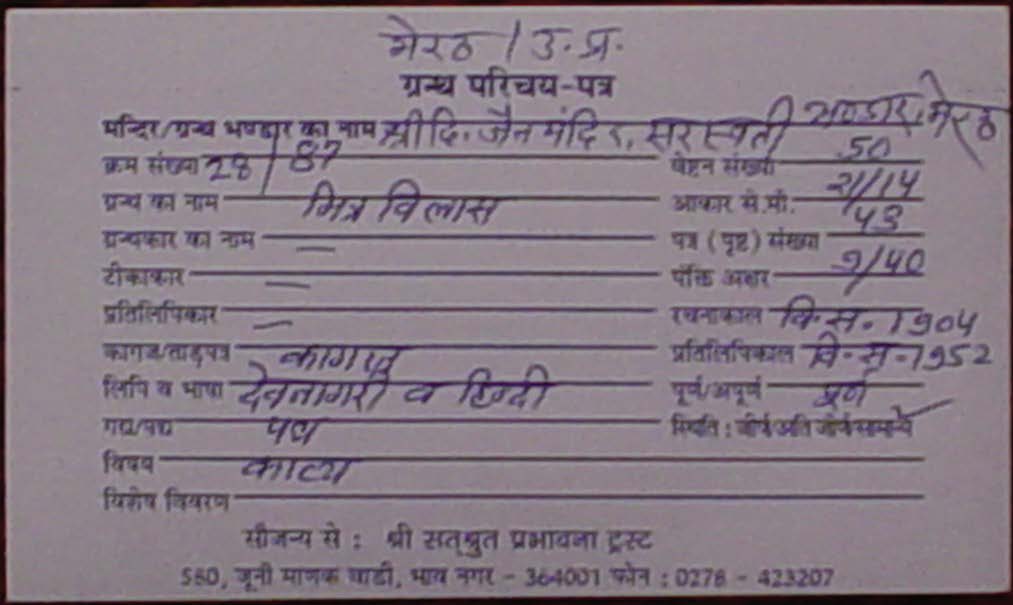 मेरठ / उ. प्र.
ग्रन्थ परिचय-पत्र
मन्दिर/ग्रन्थ भण्डार का नाम श्री दि. जैन मंदिर, सरस्वती भण्डार, मेरठ
क्रम संख्या 28/87 वेष्टन संख्या 50
ग्रन्थ का नाम मित्र विलास आकार से.मी. 21/14
ग्रन्थकार का नाम — पत्र (पृष्ट) संख्या 43
टीकाकार — पंक्ति अक्षर 9/40
प्रतिलिपिकार — रचनाकाल वि. स. 1904
कागज/ताड़पत्र कागज प्रतिलिपिकाल वि. स. 1952
लिपि व भाषा देवनागरी व हिन्दी पूर्ण/अपूर्ण पूर्ण
गद्य/पद्य पद्य स्थिति : जीर्ण/अति जीर्ण/सामान्य ✓
विषय काव्य
विशेष विवरण
सौजन्य से : श्री सत्श्रुत प्रभावना ट्रस्ट
580, जूनी माणक वाडी, भाव नगर - 364001 फोन : 0278 - 423207